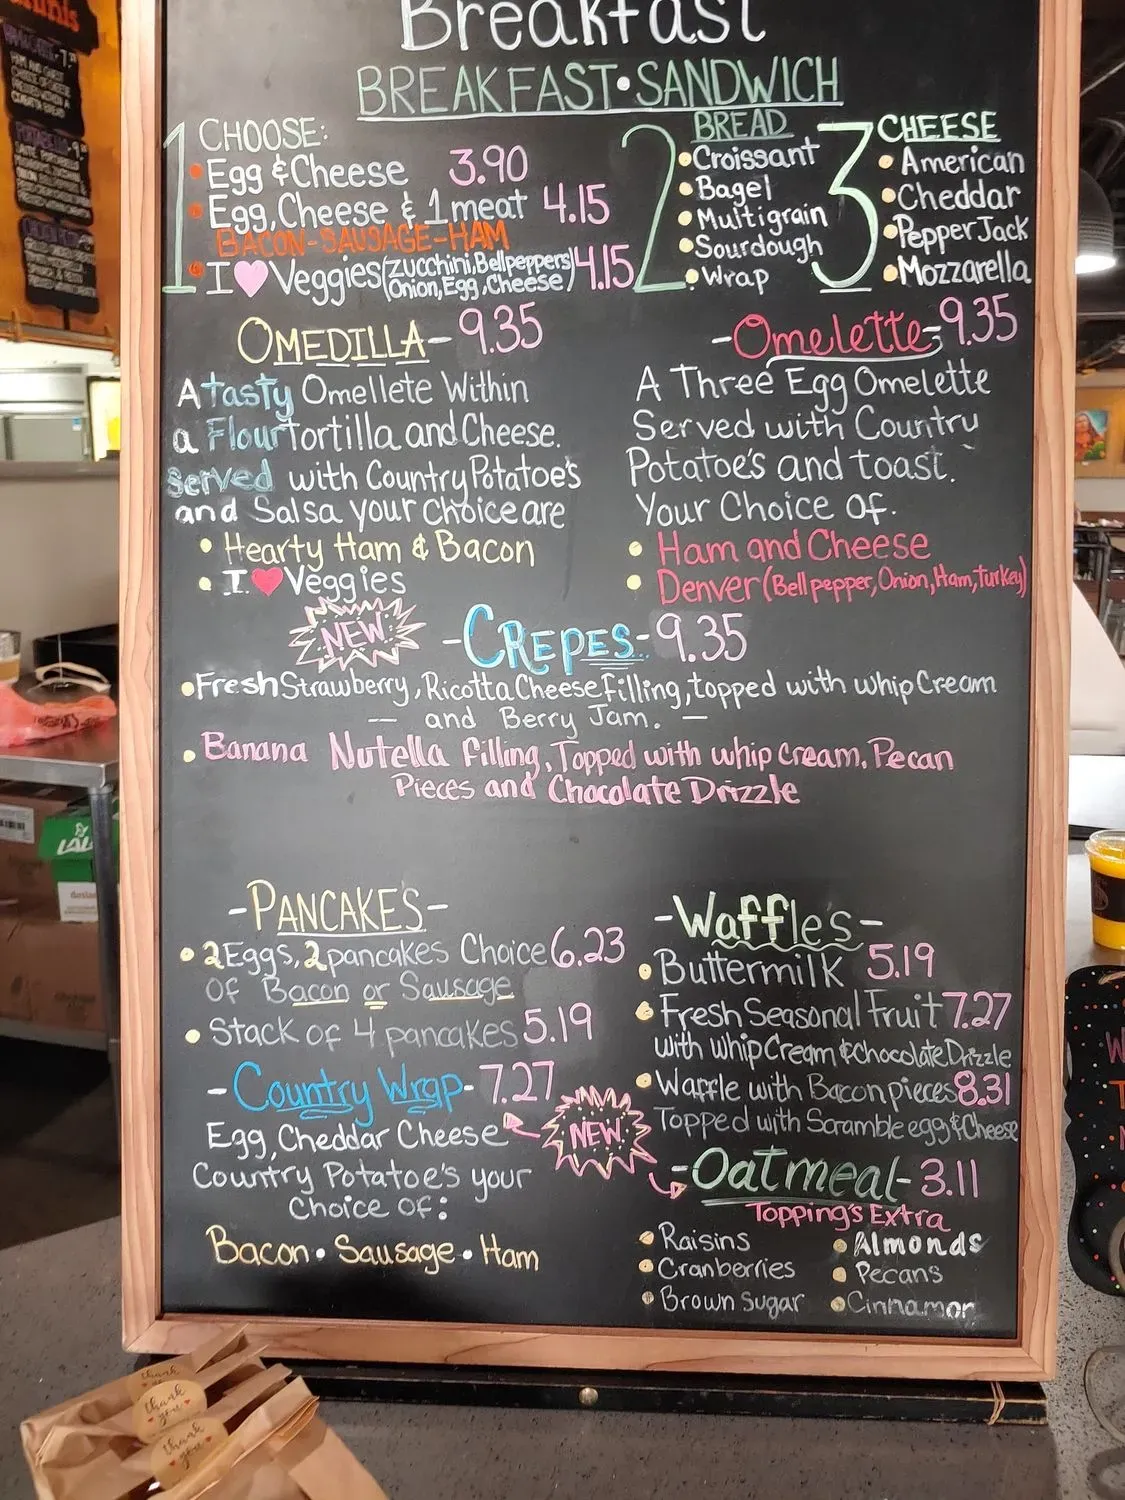 Breakfast
BREAKFAST • SANDWICH
1 CHOOSE:
• Egg & Cheese 3.90
• Egg, Cheese & 1 meat 4.15
BACON-SAUSAGE-HAM
• I ♥ Veggies (Zucchini, Bellpeppers Onion, Egg, Cheese) 4.15
2 BREAD
• Croissant
• Bagel
• Multigrain
• Sourdough
• Wrap
3 CHEESE
• American
• Cheddar
• Pepper Jack
• Mozzarella
OMEDILLA - 9.35
A tasty Omellete Within
a Flour tortilla and Cheese.
Served with Country Potatoe's
and Salsa your choice are
• Hearty Ham & Bacon
• I ♥ Veggies
- Omelette - 9.35
A Three Egg Omelette
Served with Country
Potatoe's and toast.
Your Choice of.
• Ham and Cheese
• Denver (Bell pepper, Onion, Ham, Turkey)
NEW
- CREPES - 9.35
• Fresh Strawberry, Ricotta Cheese filling, topped with whip Cream
— and Berry Jam. —
• Banana Nutella filling, Topped with whip cream, Pecan
Pieces and Chocolate Drizzle
- PANCAKE'S -
• 2 Eggs, 2 pancakes Choice 6.23
of Bacon or Sausage
• Stack of 4 pancakes 5.19
- Country Wrap - 7.27
NEW
Egg, Cheddar Cheese
Country Potatoe's your
Choice of:
Bacon • Sausage • Ham
- Waffle's -
• Buttermilk 5.19
• Fresh Seasonal Fruit 7.27
with whip Cream & Chocolate Drizzle
• Waffle with Bacon pieces 8.31
Topped with Scramble egg & Cheese
- Oatmeal - 3.11
Topping's Extra
• Raisins
• Cranberries
• Brown Sugar
• Almonds
• Pecans
• Cinnamon
thank
thank you
thank you
LALA